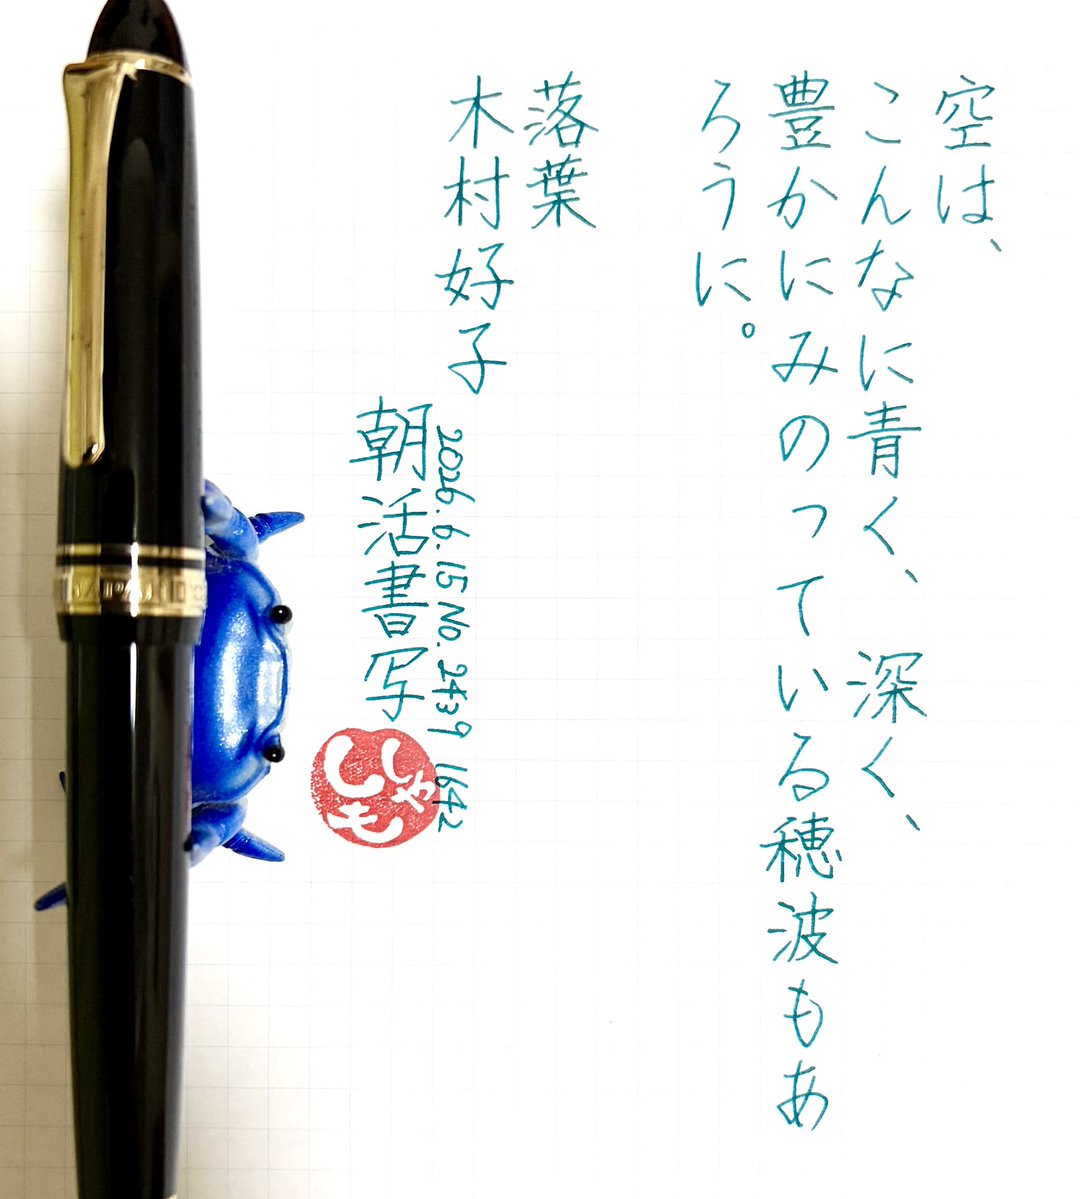 空は、
こんなに青く、深く、
豊かにみのっている穂波もあ
ろうに。
落葉
木村好子
2026.6.15 No.2439 1642
朝活書写
しゃしも